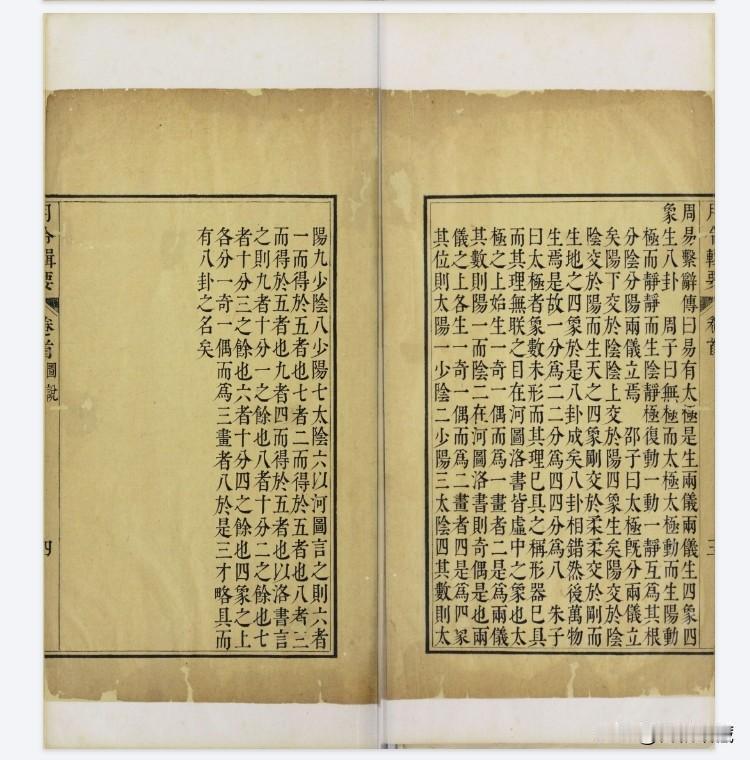 輯要 卷首 三
周易繫辭傳曰易有太極是生兩儀兩儀生四象四
象生八卦 周子曰無極而太極太極動而生陽動
極而靜靜而生陰靜極復動一動一靜互爲其根
分陰分陽兩儀立焉 邵子曰太極旣分兩儀立
矣陽下交於陰陰上交於陽四象生矣陽交於陰
陰交於陽而生天之四象剛交於柔柔交於剛而
生地之四象於是八卦成矣八卦相錯然後萬物
生焉是故一分爲二二分爲四四分爲八 朱子
曰太極者象數未形而其理已具之稱形器已具
而其理無眹之目在河圖洛書皆虛中之象也太
極之上始生一奇一偶而爲一畫者二是爲兩儀
其數則陽一而陰二在河圖洛書則奇偶是也兩
儀之上各生一奇一偶而爲二畫者四是爲四象
其位則太陽一少陰二少陽三太陰四其數則太
陽九少陰八少陽七太陰六以河圖言之則六者
一而得於五者也七者二而得於五者也八者三
而得於五者也九者四而得於五者也以洛書言
之則九者十分一之餘也八者十分二之餘也七
者十分三之餘也六者十分四之餘也四象之上
各分一奇一偶而爲三畫者八於是三才略具而
有八卦之名矣
輯要 卷首 圖說 四